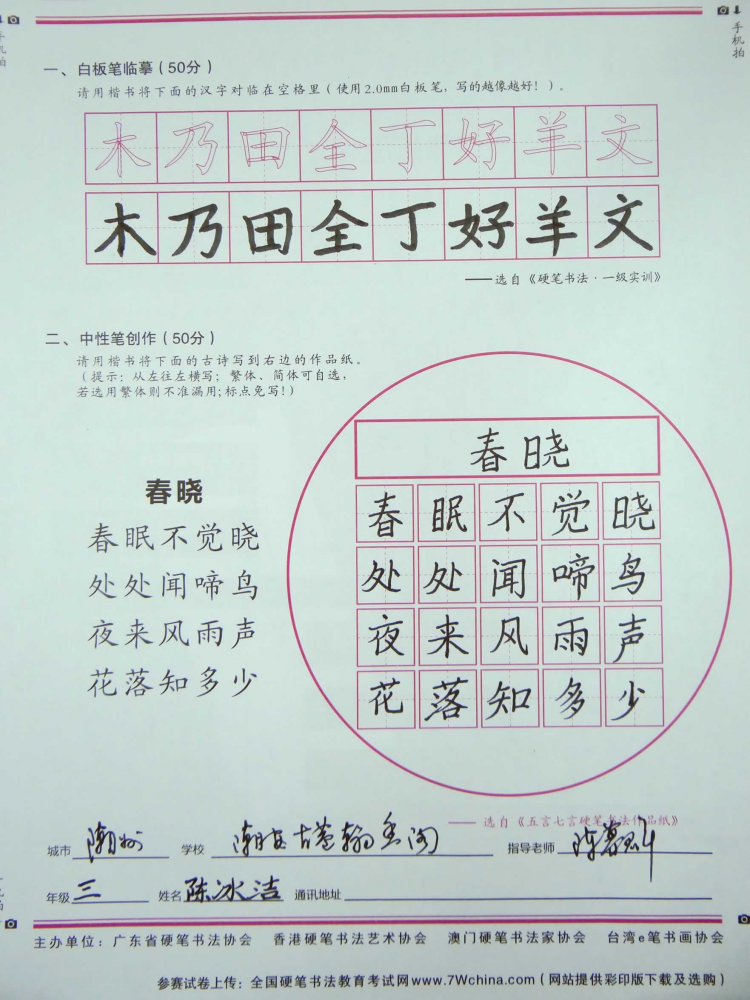 手机拍
一、白板笔临摹（50分）
请用楷书将下面的汉字对临在空格里（使用2.0mm白板笔，写的越像越好！）。
木乃田全丁好羊文
木乃田全丁好羊文
——选自《硬笔书法·一级实训》
二、中性笔创作（50分）
请用楷书将下面的古诗写到右边的作品纸。
（提示：从左往左横写；繁体、简体可自选，
若选用繁体则不准漏用；标点免写！）
春晓
春眠不觉晓
处处闻啼鸟
夜来风雨声
花落知多少
春晓
春眠不觉晓
处处闻啼鸟
夜来风雨声
花落知多少
——选自《五言七言硬笔书法作品纸》
城市 潮州 学校 指导老师
年级 三 姓名 陈冰洁 通讯地址
主办单位：广东省硬笔书法协会 香港硬笔书法艺术协会 澳门硬笔书法家协会 台湾e笔书画协会
参赛试卷上传：全国硬笔书法教育考试网www.7Wchina.com（网站提供彩印版下载及选购）